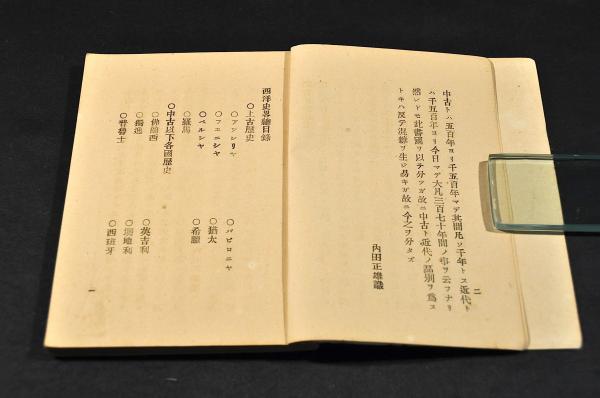 中古トハ五百年ヨリ千五百年マデ其間凡ソ千年トス近代ト
ハ千五百年ヨリ今日マデ大凡三百七十年間ノ事ヲ云フナリ
然レドモ此書國ヲ以テ分ツガ故ニ中古ト近代ノ區別ヲ爲ス
トキハ反テ混雜ヲ生ジ易キガ故ニ今之ヲ分タズ
內田正雄識
二
西洋史畧總目錄
○上古歷史
○アッシリヤ ○バビロニヤ
○フェニシヤ ○猶太
○ペルシヤ ○希臘
○羅馬
○中古以下各國歷史
○佛蘭西 ○英吉利
○獨逸 ○墺地利
○普魯士 ○西班牙
一